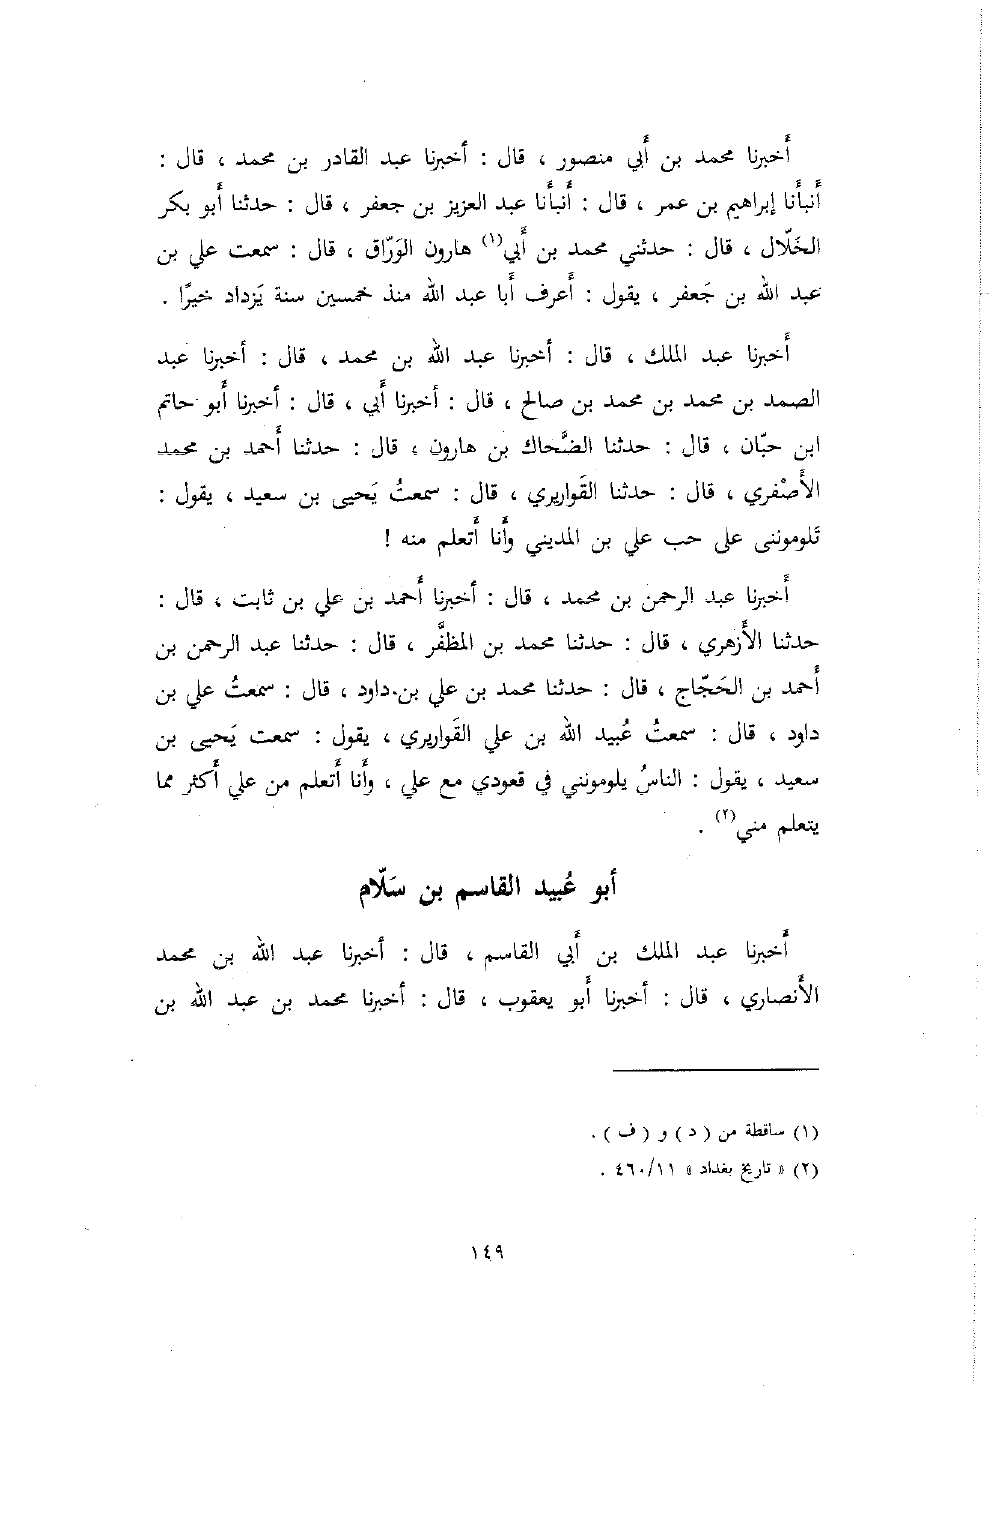 أَخبرنا محمد بن أَبي منصور ، قال : أخبرنا عبد القادر بن محمد ، قال :
أَنبأَنا إبراهيم بن عمر ، قال : أَنبأَنا عبد العزيز بن جعفر ، قال : حدثنا أَبو بكر
الخَلّال ، قال : حدثني محمد بن أَبي(١) هارون الوَرّاق ، قال : سمعت علي بن
عبد الله بن جَعفر ، يقول : أَعرف أَبا عبد الله منذ خمسين سنة يَزداد خيرًا .
أَخبرنا عبد الملك ، قال : أخبرنا عبد الله بن محمد ، قال : أخبرنا عبد
الصمد بن محمد بن محمد بن صالح ، قال : أخبرنا أَبي ، قال : أخبرنا أَبو حاتم
ابن حبّان ، قال : حدثنا الضَّحاك بن هارون ، قال : حدثنا أَحمد بن محمد
الأَصْفري ، قال : حدثنا القَواريري ، قال : سمعتُ يَحيى بن سعيد ، يقول :
تَلومونني على حب علي بن المديني وأَنا أَتعلم منه !
أَخبرنا عبد الرحمن بن محمد ، قال : أخبرنا أَحمد بن علي بن ثابت ، قال :
حدثنا الأَزهري ، قال : حدثنا محمد بن المظفَّر ، قال : حدثنا عبد الرحمن بن
أَحمد بن الحَجّاج ، قال : حدثنا محمد بن علي بن داود ، قال : سمعتُ علي بن
داود ، قال : سمعتُ عُبيد الله بن علي القَواريري ، يقول : سمعت يَحيى بن
سعيد ، يقول : الناسُ يلومونني في قعودي مع علي ، وأَنا أَتعلم من علي أَكثر مما
يتعلم مني(٢) .
أبو عُبيد القاسم بن سَلّام
أَخبرنا عبد الملك بن أَبي القاسم ، قال : أخبرنا عبد الله بن محمد
الأَنصاري ، قال : أخبرنا أَبو يعقوب ، قال : أخبرنا محمد بن عبد الله بن
(١) ساقطة من ( د ) و ( ف ) .
(٢) « تاريخ بغداد » ٤٦٠/١١ .
١٤٩